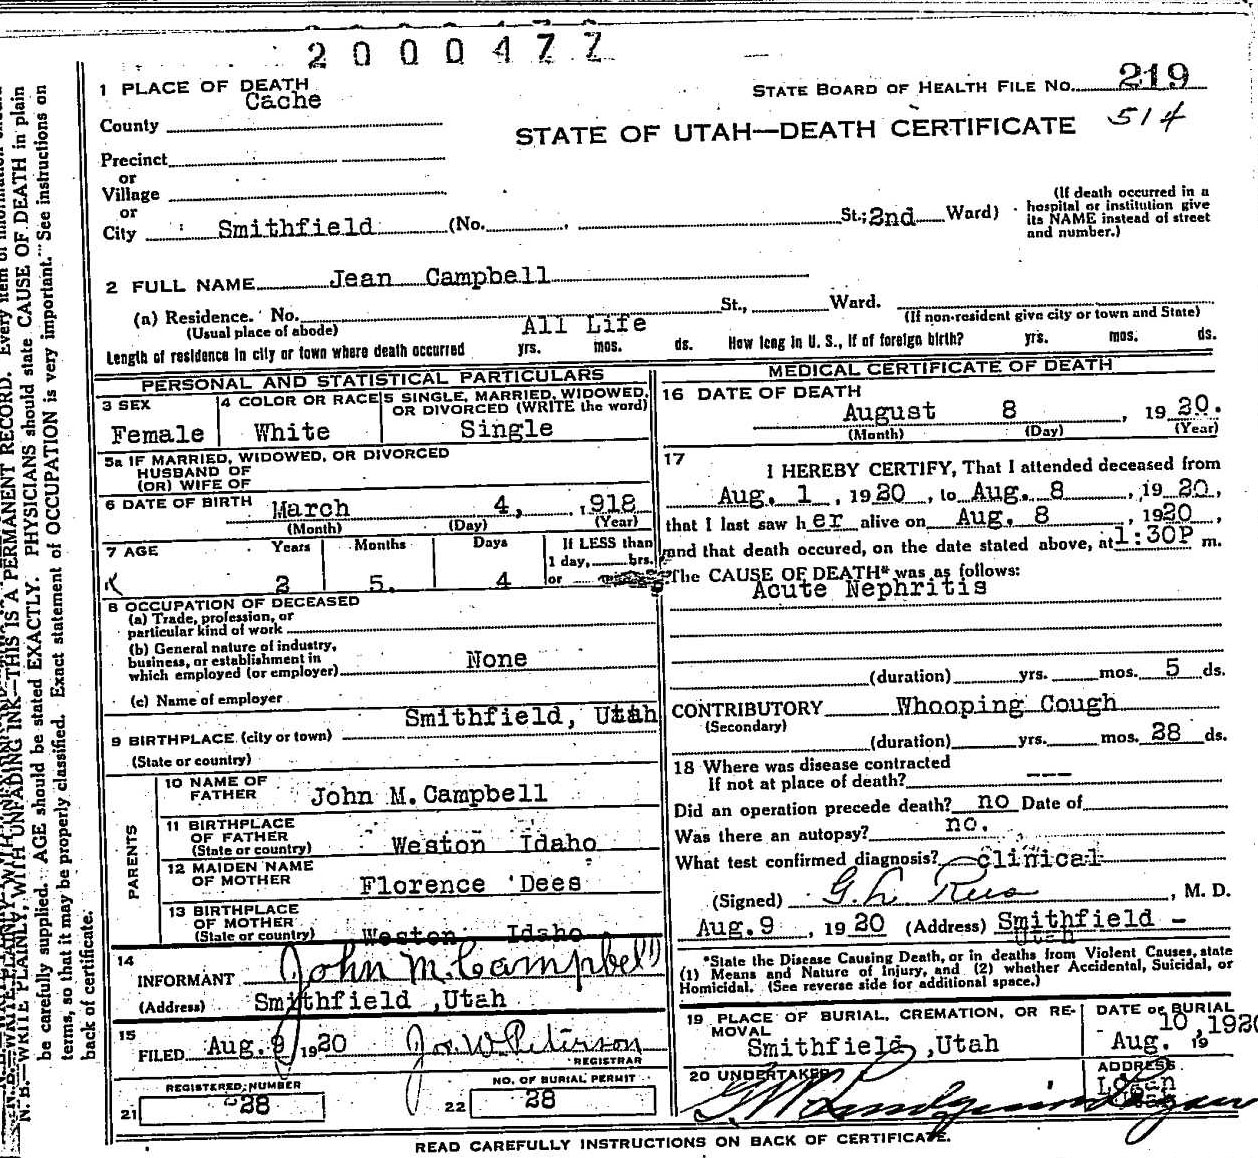 2000477
1 PLACE OF DEATH
STATE BOARD OF HEALTH FILE NO. 219
Cache
County
STATE OF UTAH—DEATH CERTIFICATE 514
Precinct
or
Village
or
City Smithfield (No. St.; 2nd Ward)
(If death occurred in a
hospital or institution give
its NAME instead of street
and number.)
2 FULL NAME Jean Campbell
(a) Residence. No. St., Ward.
(Usual place of abode)
(If non-resident give city or town and State)
All Life
Length of residence in city or town where death occurred yrs. mos. ds. How long in U. S., if of foreign birth? yrs. mos. ds.
PERSONAL AND STATISTICAL PARTICULARS
3 SEX
Female
4 COLOR OR RACE
White
5 SINGLE, MARRIED, WIDOWED,
OR DIVORCED (WRITE the word)
Single
5a IF MARRIED, WIDOWED, OR DIVORCED
HUSBAND OF
(OR) WIFE OF
6 DATE OF BIRTH March 4, , 1918
(Month) (Day) (Year)
7 AGE Years Months Days If LESS than
1 day, hrs.
2 5. 4 or
8 OCCUPATION OF DECEASED
(a) Trade, profession, or
particular kind of work
(b) General nature of industry,
business, or establishment in
which employed (or employer) None
(c) Name of employer
Smithfield, Utah
9 BIRTHPLACE (city or town)
(State or country)
PARENTS
10 NAME OF
FATHER John M.Campbell
11 BIRTHPLACE
OF FATHER
(State or country) Weston Idaho
12 MAIDEN NAME
OF MOTHER Florence Dees
13 BIRTHPLACE
OF MOTHER
(State or country) Weston Idaho
14
INFORMANT John M. Campbell
(Address) Smithfield ,Utah
15
FILED Aug. 9 1920 Jos. W. Peterson
REGISTRAR
REGISTERED NUMBER
21 28
NO. OF BURIAL PERMIT
22 28
MEDICAL CERTIFICATE OF DEATH
16 DATE OF DEATH
August 8 , 1920.
(Month) (Day) (Year)
17
I HEREBY CERTIFY, That I attended deceased from
Aug. 1 , 1920 , to Aug. 8 , 1920,
that I last saw her alive on Aug. 8 , 1920 ,
and that death occured, on the date stated above, at 1:30P m.
The CAUSE OF DEATH* was as follows:
Acute Nephritis
(duration) yrs. mos. 5 ds.
CONTRIBUTORY Whooping Cough
(Secondary)
(duration) yrs. mos. 28 ds.
18 Where was disease contracted
If not at place of death? ---
Did an operation precede death? no Date of
Was there an autopsy? no.
What test confirmed diagnosis? clinical
(Signed) G. L. Rees , M. D.
Aug. 9 , 1920 (Address) Smithfield -
Utah
*State the Disease Causing Death, or in deaths from Violent Causes, state
(1) Means and Nature of Injury, and (2) whether Accidental, Suicidal, or
Homicidal. (See reverse side for additional space.)
19 PLACE OF BURIAL, CREMATION, OR RE-
MOVAL
Smithfield ,Utah
DATE OF BURIAL
Aug. 10, 1920
19
20 UNDERTAKER
ADDRESS
Logan
READ CAREFULLY INSTRUCTIONS ON BACK OF CERTIFICATE.
N. B.—WRITE PLAINLY, WITH UNFADING INK—THIS IS A PERMANENT RECORD. Every item of information should
be carefully supplied. AGE should be stated EXACTLY. PHYSICIANS should state CAUSE OF DEATH in plain
terms, so that it may be properly classified. Exact statement of OCCUPATION is very important. See instructions on
back of certificate.